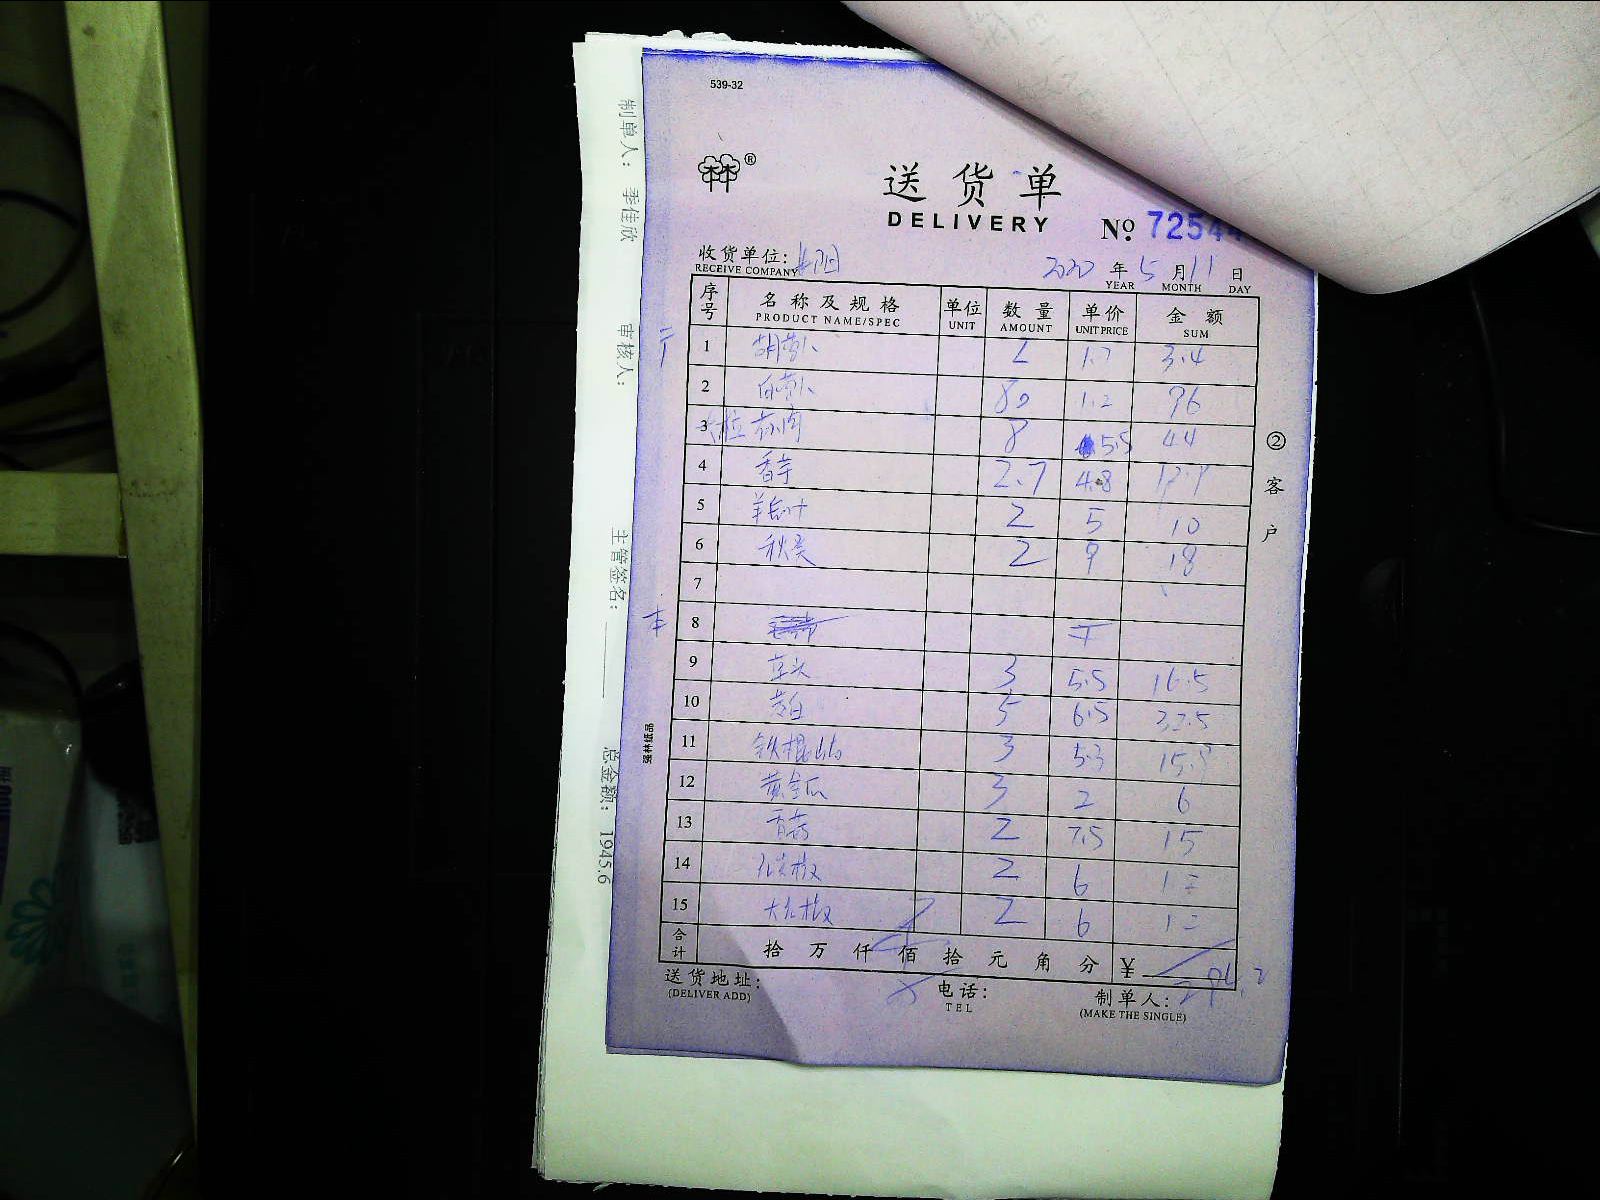 539-32
®
送货单
DELIVERY
No. 7254
收货单位:
RECEIVE COMPANY
2020 年 5 月 11 日
YEAR MONTH DAY
序号 名称及规格 单位 数量 单价 金额
PRODUCT NAME/SPEC UNIT AMOUNT UNIT PRICE SUM
1 胡萝卜 2 1.7 3.4
2 白萝卜 80 1.2 96
3 8 5.5 44
4 香芋 2.7 4.8
5 2 5 10
6 秋葵 2 9 18
7
8
9 草头 3 5.5 16.5
10 茭白 5 6.5 32.5
11 铁棍山 3 5.3 15.9
12 黄金瓜 3 2 6
13 2 7.5 15
14 2 6 12
15 大红椒 2 6 12
合计 拾 万 仟 佰 拾 元 角 分 ¥
送货地址:
(DELIVER ADD)
电话:
TEL
制单人:
(MAKE THE SINGLE)
② 客户
强林纸品
制单人: 季佳欣
审核人:
主管签名:
总金额: 1945.6